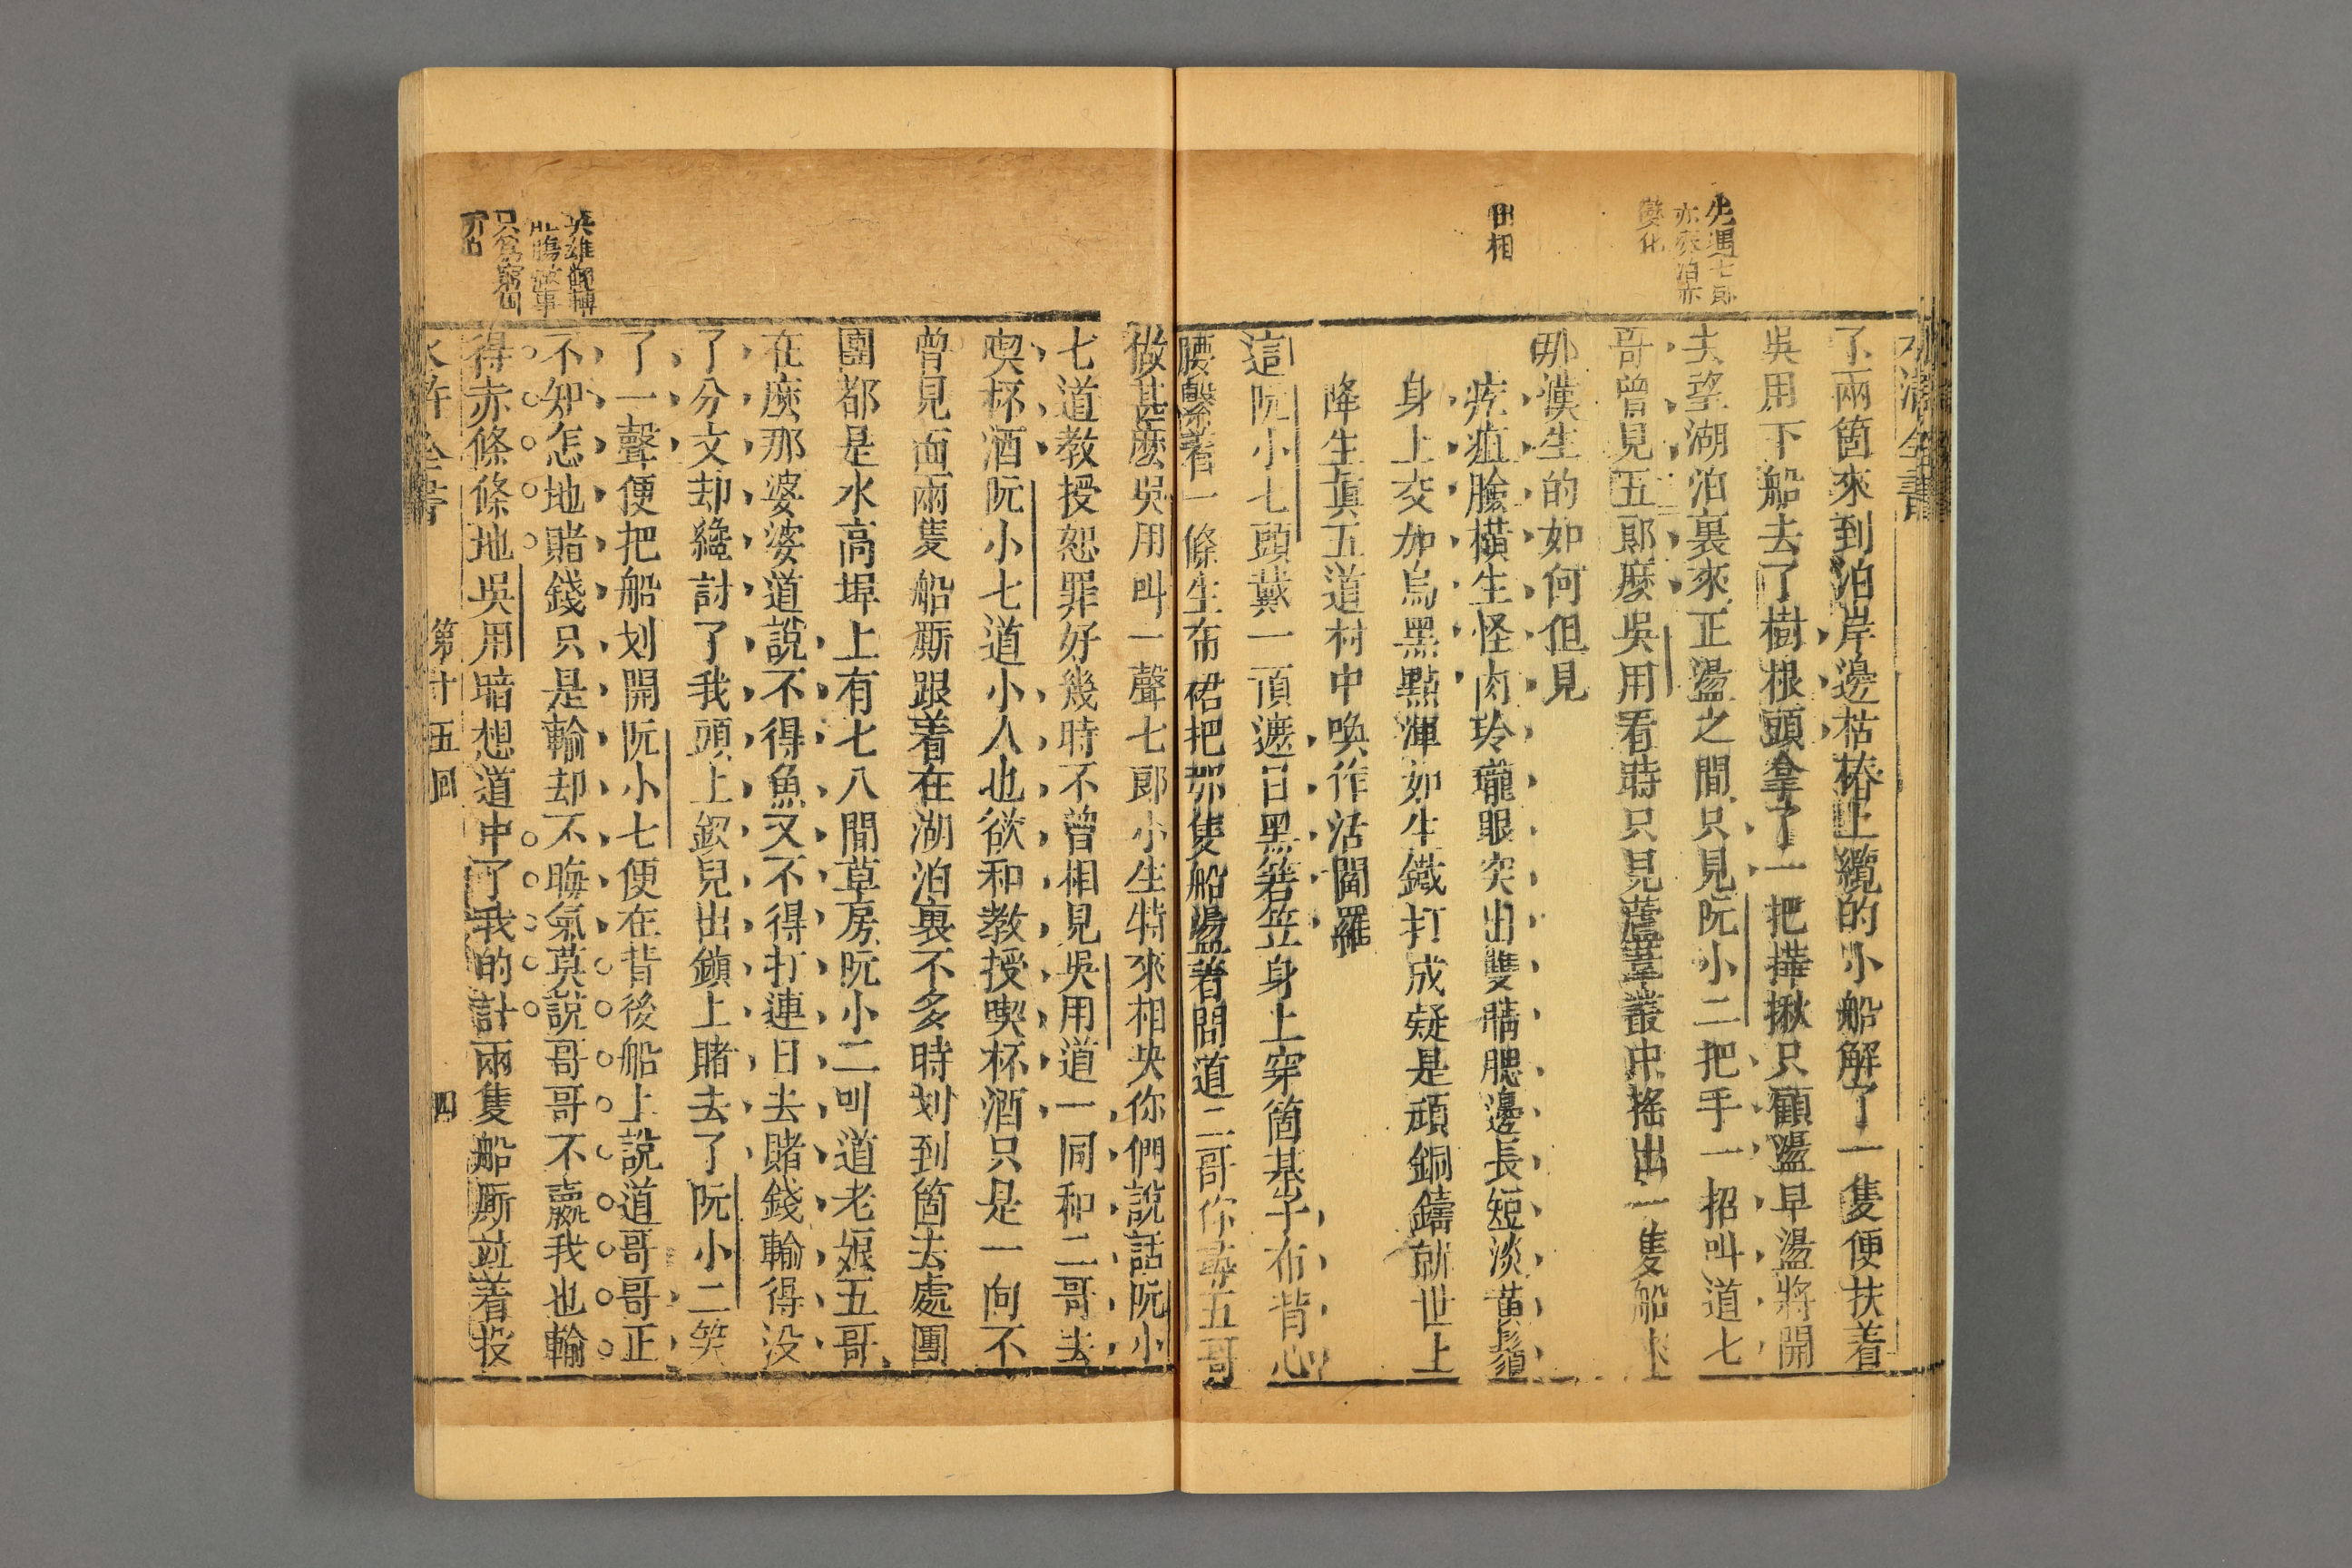 先遇七郎
變化
出相
水滸全書
了兩箇來到泊岸邊枯樁上纜的小船解了一隻便扶着
吳用下船去了樹根頭拿了一把樺揪只顧盪早盪將開
去望湖泊裏來正盪之間只見阮小二把手一招叫道七
哥曾見五郎麽吳用看時只見蘆葦叢中搖出一隻船來
那漢生的如何但見
疙疸臉橫生怪肉玲瓏眼突出雙睛腮邊長短淡黃鬚
身上交加烏黑點渾如生鐵打成疑是頑銅鑄就世上
降生眞五道村中喚作活閻羅
這阮小七頭戴一頂遮日黑箬笠身上穿箇棊子布背心
腰繫着一條生布裙把那隻船盪着問道二哥你尋五哥
做甚麽吳用叫一聲七郎小生特來相央你們說話阮小
七道教授恕罪好幾時不曾相見吳用道一同和二哥去
喫杯酒阮小七道小人也欲和教授喫杯酒只是一向不
曾見面兩隻船厮跟着在湖泊裏不多時划到箇去處團
團都是水高埠上有七八間草房阮小二叫道老娘五哥
在麽那婆婆道說不得魚又不得打連日去賭錢輸得没
了分文却纔討了我頭上釵兒出鎮上賭去了阮小二笑
了一聲便把船划開阮小七便在背後船上說道哥哥正
不知怎地賭錢只是輸却不晦氣莫說哥哥不贏我也輸
得赤條條地吳用暗想道中了我的計兩隻船厮竝着投
英雄
只爲窮
水滸全書
第十五回
四